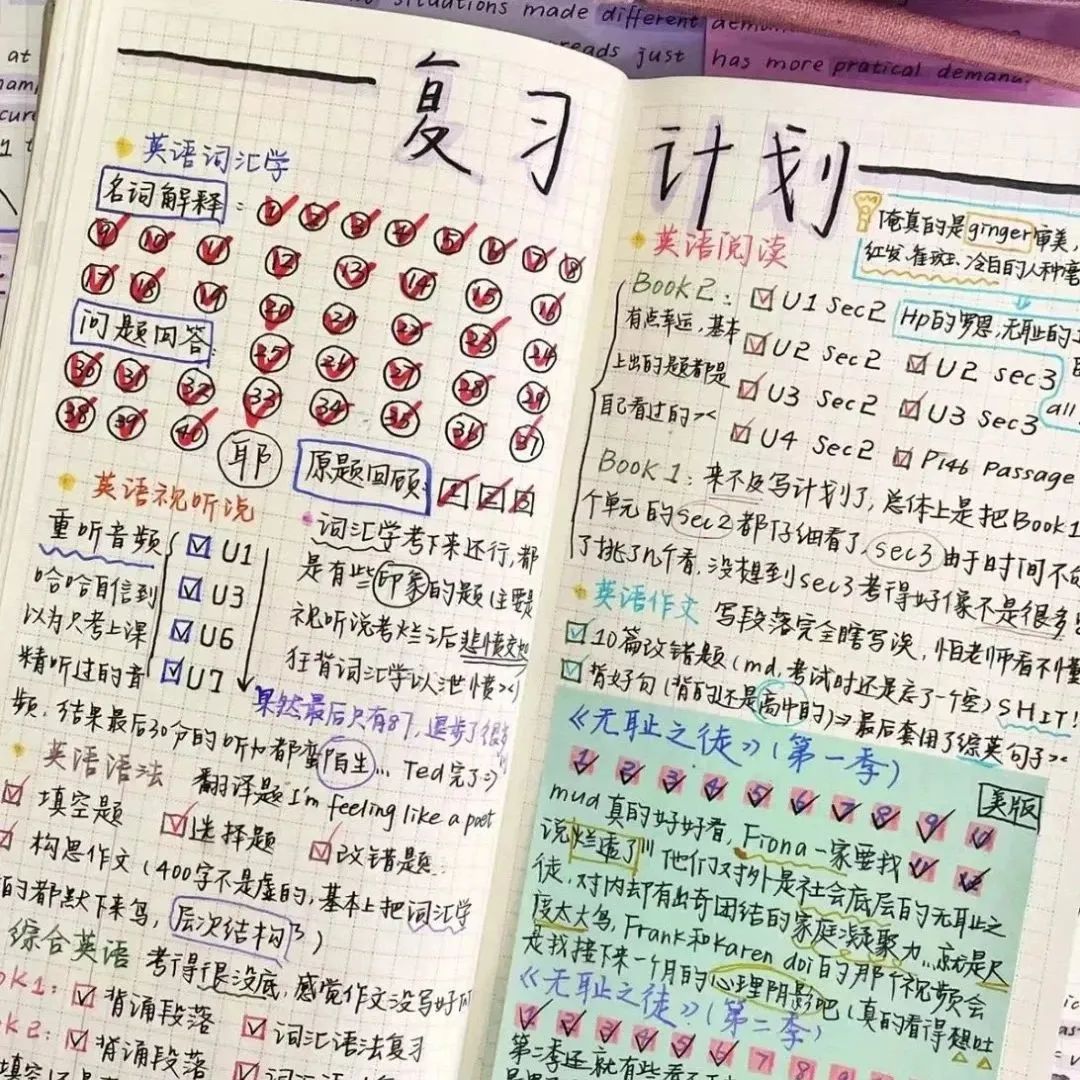 situations made different
reads just has more pratical demand.
at
复习计划
英语词汇学
名词解释: ① ② ③ ④ ⑤ ⑥ ⑦ ⑧
⑨ ⑩ ⑪ ⑫ ⑬ ⑭ ⑮ ⑯
⑰ ⑱ ⑲ ⑳ ㉑ ㉒ ㉓ ㉔
问题回答: ㉕ ㉖ ㉗ ㉘ ㉙
㉚ ㉛ ㉜ ㉝ ㉞ ㉟ ㊱ ㊲
㊳ ㊴ ㊵
耶
原题回顾: 1 2 3
英语视听说
重听音频
U1
U3
U6
U7
哈哈自信到
以为只考上课
精听过的音
频,结果最后30分的听力都蛮陌生... Ted完了:)
词汇学考下来还行,都
是有些印象的题(主要是
视听说考烂之后悲愤交加
狂背词汇学以泄愤><)
果然最后只有87,退步了很多
英语语法
翻译题I'm feeling like a poet
填空题 选择题 改错题
构思作文(400字不是虚的,基本上把词汇学
的都默下来写,层次结构)
综合英语 考得很没底,感觉作文没写好
背诵段落 词汇语法复习
背诵段落
英语阅读
俺真的是ginger审美,
红发、雀斑、冷白的人种
Hp的罗恩,无耻的
all
Book 2:
有点幸运,基本
上出的题都是
自己看过的><
U1 sec2
U2 sec2 U2 sec3
U3 sec2 U3 sec3
U4 sec2 P146 Passage
Book 1: 来不及写计划了,总体上是把Book1
个单元的sec2都仔细看了,sec3由于时间不
了挑了几个看,没想到sec3考得好像不是很多
英语作文 写段落完全瞎写诶,怕老师看不懂
10篇改错题(md,考试时还是忘了一个空)SHIT!
背好句(背的还是高中的)⇒最后套用了综英句子><
《无耻之徒》(第一季)
1 2 3 4 5 6 7 8 9 10
美版
11 12
mua真的好好看,Fiona一家要我
说烂透了!!!他们对外是社会底层的无耻之
徒,对内却有出奇团结的家庭凝聚力...就是尺
度太大,Frank和Karen doi的那个视频会
是我接下来一个月的心理阴影吧(真的看得想吐
《无耻之徒》(第二季)
1 2 3 4 5 6 7 8 9